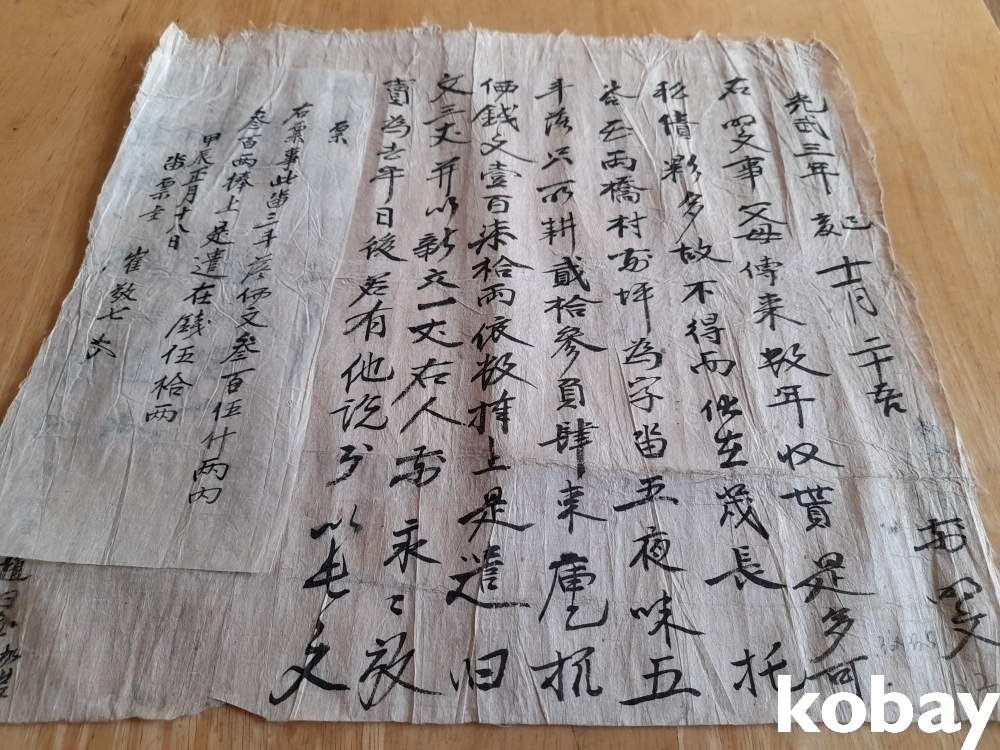 光武三年 記 十一月 二十五日 前明文
右明文事父母傳來數年收貰是多可
私債夥多故不得而 茂長 托
谷面兩橋村前坪為字畓五夜味五
斗落只所耕貳拾參負肆束庫 扵
価錢文壹百柒拾兩依數捧上是遣 旧
文三丈并以新文一丈右人前 永永放
賣為去乎日後若有他說則 以此文
票
右票事此畓三斗落価文叄百伍什兩內
叄百兩捧上是遣在錢伍拾兩
甲辰正月十八日
畓票主 崔敬七
kobay